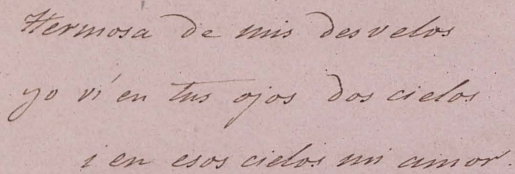 Hermosa de mis desvelos
yo ví en tus ojos dos cielos
i en esos cielos mi amor.